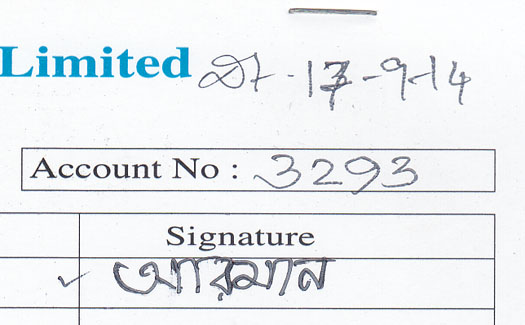 Limited Dt-17-9-14
Account No : 3293
Signature
আরমান